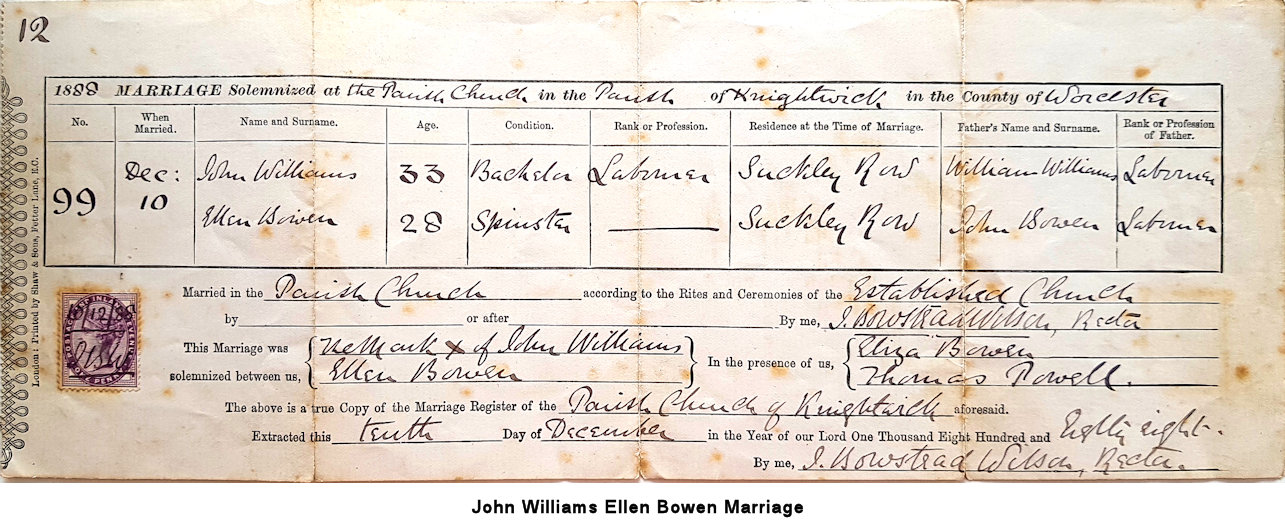 12
1888 MARRIAGE Solemnized at the Parish Church in the Parish of Knightwick in the County of Worcester
No. When Married. Name and Surname. Age. Condition. Rank or Profession. Residence at the Time of Marriage. Father's Name and Surname. Rank or Profession of Father.
99 Dec: 10 John Williams 33 Bachelor Labourer Suckley Row William Williams Labourer
Ellen Bowen 28 Spinster Suckley Row John Bowen Labourer
Married in the Parish Church according to the Rites and Ceremonies of the Established Church
by or after By me, J. Bowstead Wilson, Rector
This Marriage was solemnized between us, The Mark X of John Williams
Ellen Bowen
In the presence of us, Eliza Bowen
Thomas Powell.
The above is a true Copy of the Marriage Register of the Parish Church of Knightwick aforesaid.
Extracted this tenth Day of December in the Year of our Lord One Thousand Eight Hundred and Eighty eight.
By me, J. Bowstead Wilson, Rector.
London: Printed by Shaw & Sons, Fetter Lane, E.C.
John Williams Ellen Bowen Marriage